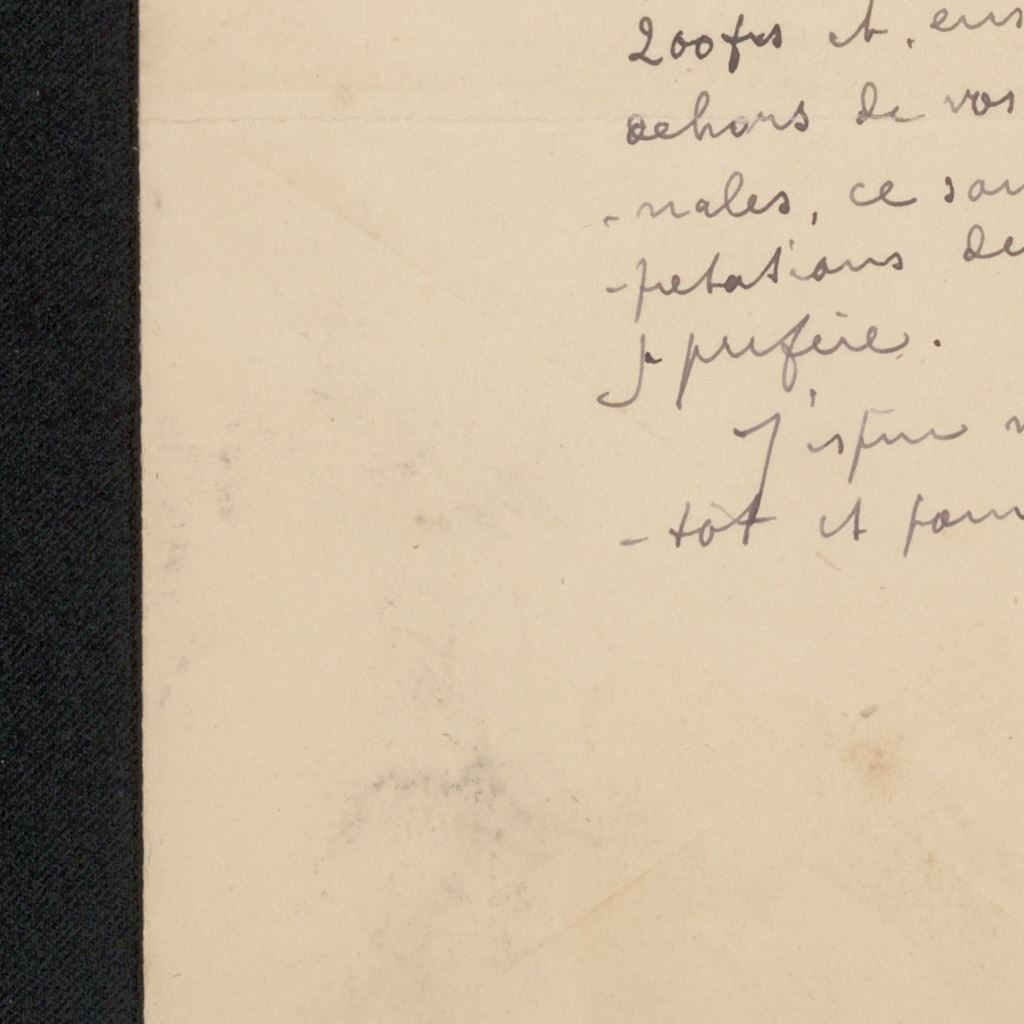 200frs et, ens
dehors de vos
-nales, ce son
-pretations de
je préfère.
J'espère v
-tôt et pour